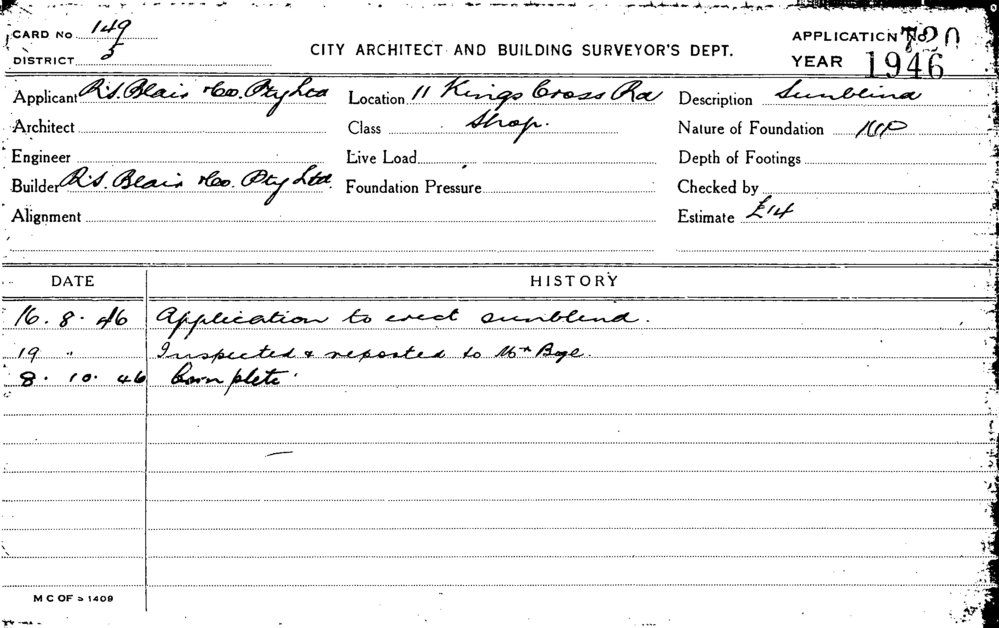 CARD No 149
DISTRICT 5
CITY ARCHITECT AND BUILDING SURVEYOR'S DEPT.
APPLICATION No. 720
YEAR 1946
Applicant R.S. Blair & Co. Pty Ltd Location 11 Kings Cross Rd Description Sunblind
Architect Class Shop. Nature of Foundation
Engineer Live Load Depth of Footings
Builder R.S. Blair & Co. Pty Ltd. Foundation Pressure Checked by
Alignment Estimate £14
DATE HISTORY
16. 8. 46 Application to erect sunblind.
19 " Inspected & reported to Mr
8. 10. 46 Complete
M C OF S 1409